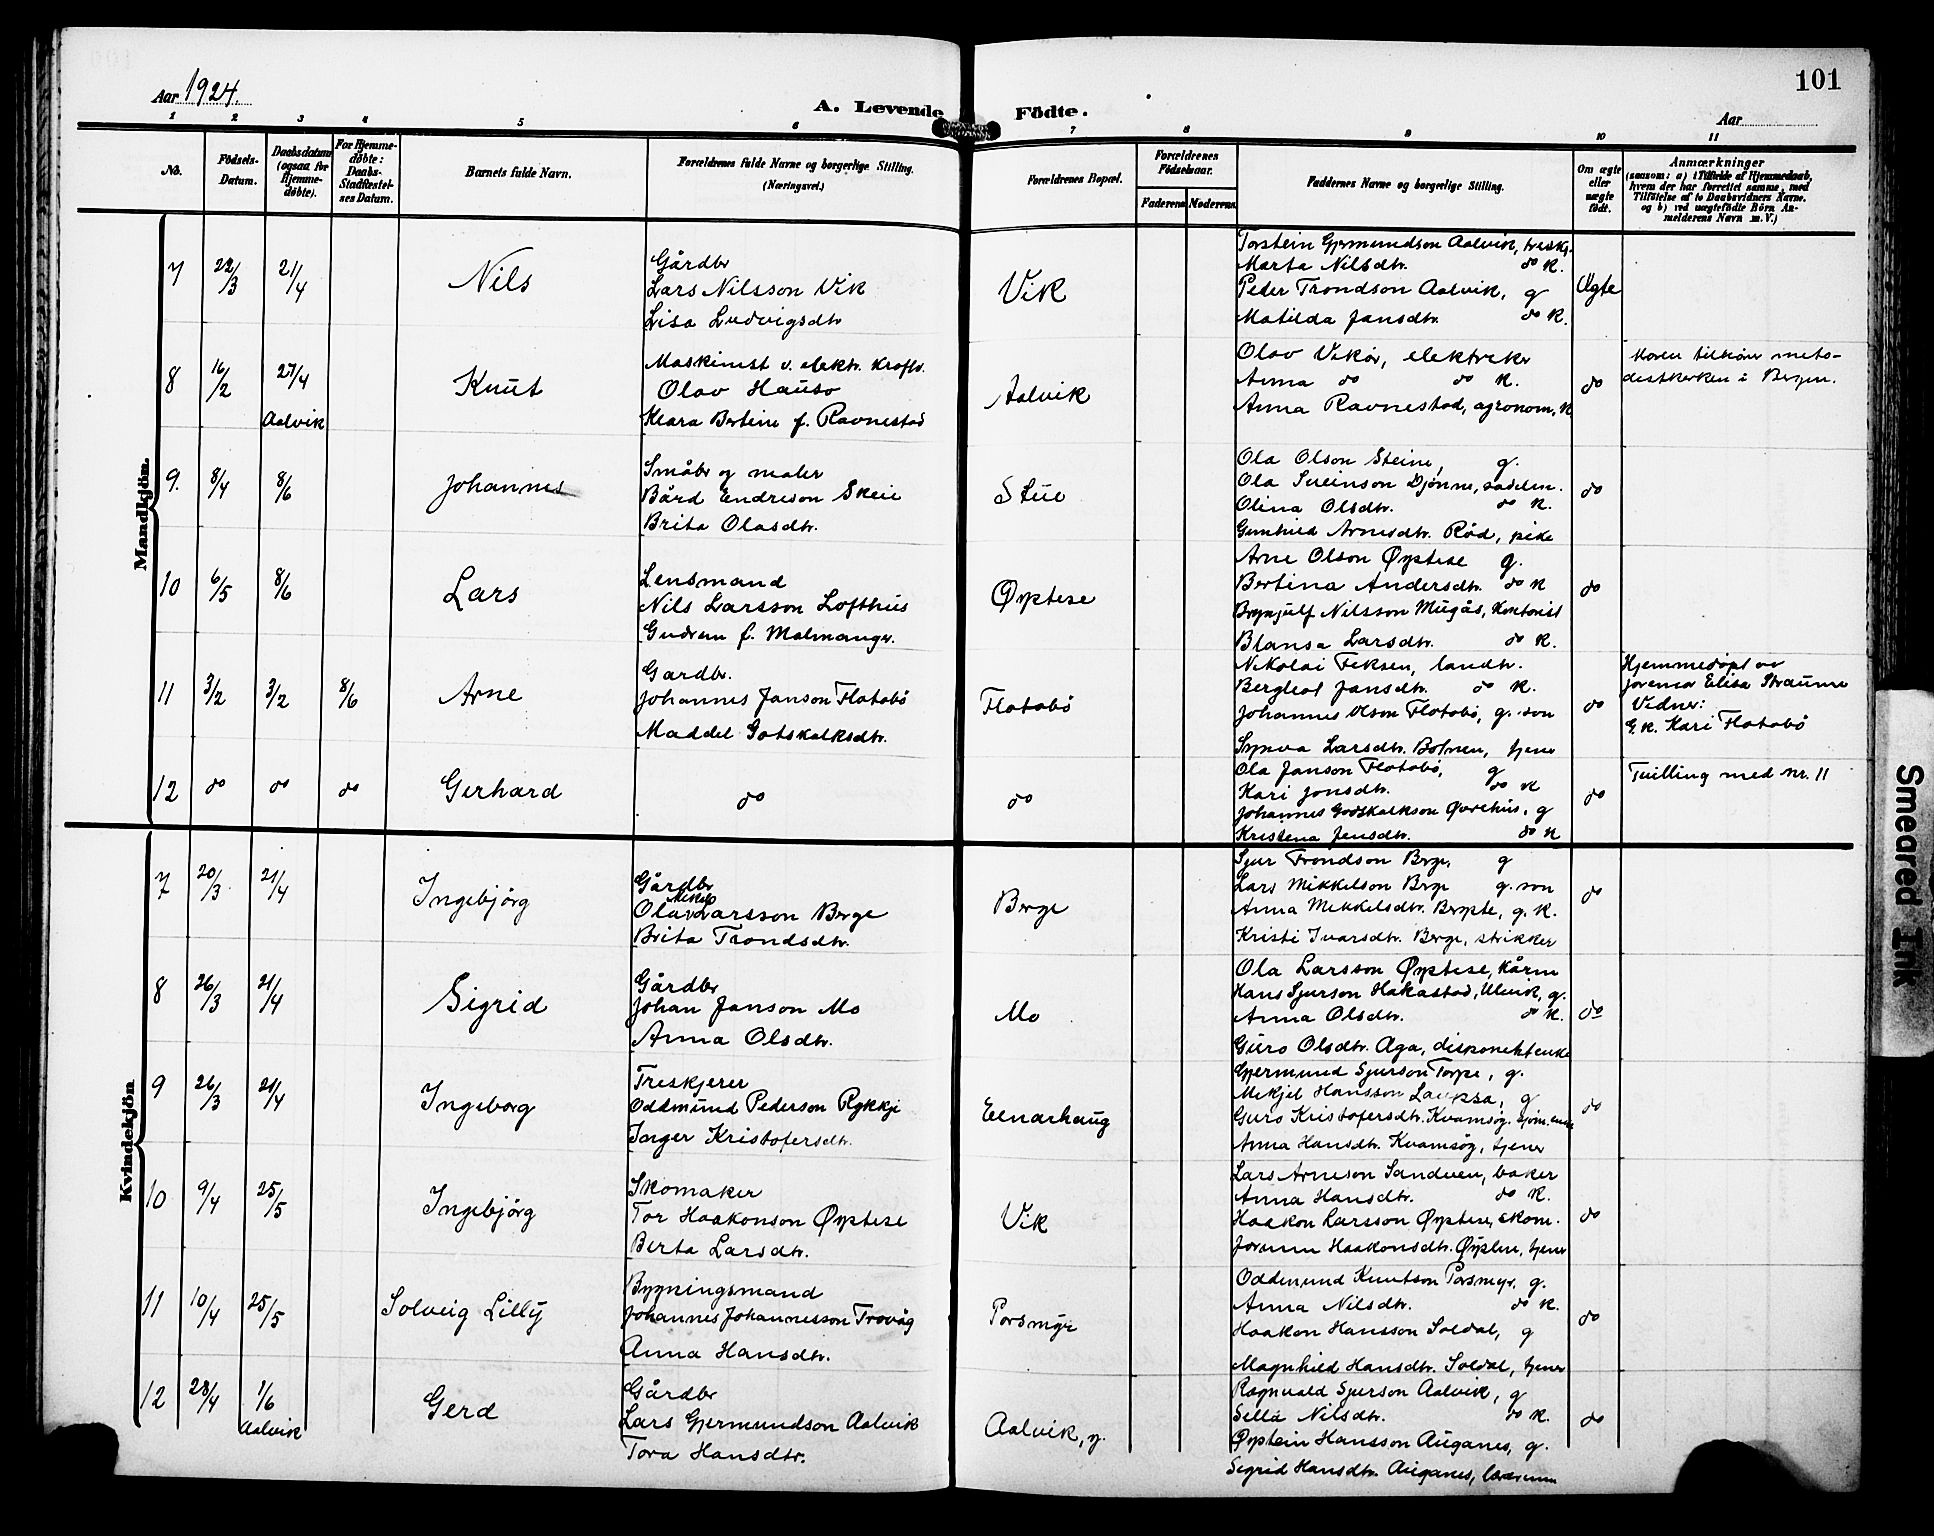 101
Aar 1924.
A. Levende Födte.
Aar
1 2 3 4 5 6 7 8 9 10 11
No.
Födsels-Datum.
Daabsdatum (ogsaa for Hjemme-döbte).
For Hjemme-döbte: Daabs-Stadfæstel-ses Datum.
Barnets fulde Navn.
Forældrenes fulde Navne og borgerlige Stilling. (Næringsvei.)
Forældrenes Bopæl.
Forældrenes Födselsaar.
Faderens Moderens
Faddernes Navne og borgerlige Stilling.
Om ægte eller uægte födt.
Anmærkninger
(saasom: a) i Tilfælde af Hjemmedaab, hvem der har forrettet samme, med Tilföielse af to Daabsvidners Navne. og b) ved uægtefödte Börn An-melderens Navn m. V.)
Mandkjön.
7 22/3 21/4 Nils
Gårdbr
Lars Nilsson Vik
Lisa Ludvigsdtr
Vik
Torstein Gjermundson Aalvik, treskj.
Marta Nilsdtr. do k.
Peder Trondson Aalvik, g
Matilda Jansdtr. do k.
Ægte
8 16/2 27/4 Aalvik Knut
Maskinist v. elektr. kraftv.
Olav Hauso
Klara Bertine f. Ravnestad
Aalvik
Olav Vikör, elektrikr
Anna do do k.
Anna Ravnestad, agronom, k
do
Moren tilhörer meto-
distkirken i Bergen.
9. 8/4 8/6 Johannes
Småbr og maler
Bård Endreson Skeie
Brita Olasdtr.
Stue
Ola Olson Steine, g.
Ola Sveinson Djönne, sadelm.
Olina Olsdtr. do k.
Gunhild Arnesdtr. Röd, pike
do
10 6/5 8/6 Lars
Lensmand
Nils Larsson Lofthus
Gudrun f. Malmanger.
Øystese
Arne Olson Øystese g.
Bertina Andersdtr. do k
Brynjulf Nilsson Mugås, kontorist
Blansa Larsdtr. do k.
do
11 3/2 3/2 8/6 Arne
Gardbr.
Johannes Janson Flotabö
Maddel Gotskalksdtr.
Flotabö
Nikolai Feksen, landh.
Bergleot Jansdtr. do k.
Johannes Olson Flotabö, g. son
Synva Larsdtr. Botnen, tjener
do
Hjemmedöpt av
jormor Elisa Straume
Vidner:
G.k. Kari Flotabö
12 do do do Gerhard
do
do
Ola Janson Flotabö, g
Kari Jonsdtr. do k
Johannes Godskalkson Øvrehus, g
Kristena Jensdtr. do k
do
Tvilling med nr. 11
Kvindekjön
7 20/3 21/4 Ingebjörg
Gårdbr
Mikal
Olav Larsson Berge
Brita Trondsdtr.
Berge
Sjur Trondson Berge, g
Lars Mikkelson Berge g. son
Anna Mikkelsdtr. Berge, g. k.
Kristi Ivarsdtr. Berge, strikker
do
8 26/3 21/4 Sigrid
Gårdbr
Johan Janson Mo
Anna Olsdtr.
Mo
Ola Larsson Øystese, kårm
Hans Sjurson Håkastad, Ulvik, g.
Anna Olsdtr. do k.
Guro Olsdtr. Aga, disponentenke
do
9 26/3 21/4 Ingeborg
Treskjerer
Oddmund Pederson Rykkje
Inger Kristofersdtr.
Einarhaug
Gjermund Sjurson Torpe, g.
Mikjel Hansson Laupsa, g
Guro Kristofersdtr. Kvamsög, tjom.enke
Anna Hansdtr. Kvamsög, tjener
do
10 9/4 25/5 Ingebjörg
Skomaker
Tor Haakonson Øystese
Berta Larsdtr.
Vik
Lars Arneson Sandven, baker
Anna Hansdtr. do k.
Haakon Larsson Øystese, skom.
Jorunn Haakonsdtr. Øystese, tjener
do
11 10/4 25/5 Solveig Lilly
Bygningsmand
Johannes Johannesson Trovåg
Anna Hansdtr.
Porsmyr
Oddmund Knutson Porsmyr, g.
Anna Nilsdtr. do k.
Haakon Hansson Soldal, g
Magnhild Hansdtr. Soldal, tjener
do
12 28/4 1/6 Aalvik Gerd
Gårdbr
Lars Gjermundson Aalvik
Tora Hansdtr.
Aalvik, y.
Ragnvald Sjurson Aalvik, g
Sella Nilsdtr. do k.
Øystein Hansson Auganes, g.
Sigrid Hansdtr. Auganes, lærerinne
do
Smeared Ink